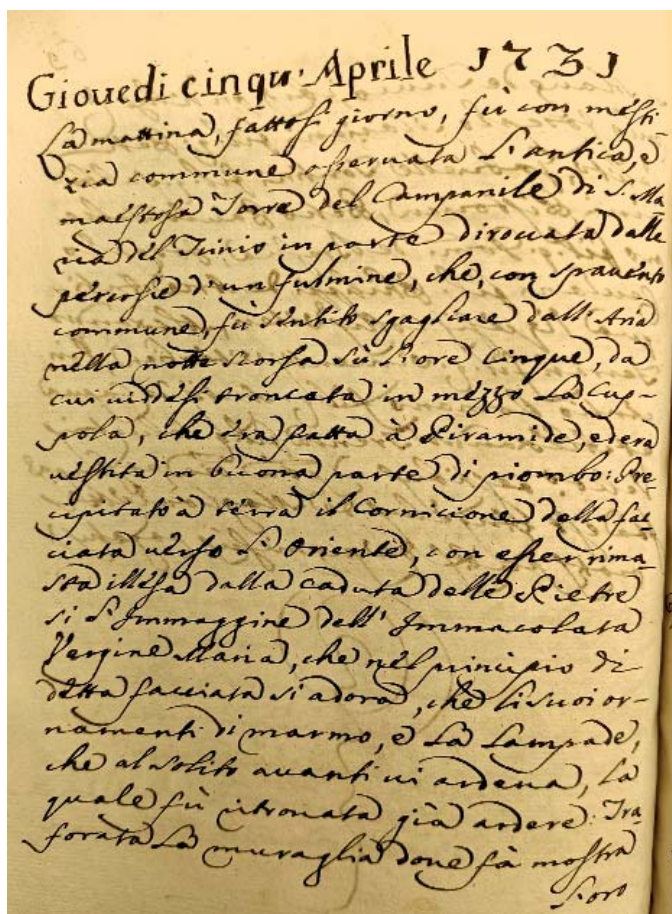 Giovedi cinqu: Aprile 1731
La mattina, fattosi giorno, fù con mesti-
zia commune osseruata l'antica, e
maestosa Torre del Campanile di S. Ma-
ria del Icinio in parte diroccata dalle
percosse d'un fulmine, che, con spauento
commune, fù sentito sgagliare dall'Aria
nella notte scorsa sù l'ore cinque, da
cui uiddesi troncata in mezzo La Cup-
pola, che era fatta à Piramide, ed era
uestita in buona parte di piombo: Pre-
cipitato à terra il Cornicione della fac-
ciata uerso l'Oriente, con esser rima-
sta illesa dalla caduta delle Pietre
si l'Immaggine dell'Immacolata
Vergine Maria, che nel principio di
detta facciata si adora, che li suoi or-
namenti di marmo, e La Lampade,
che al solito auanti ui ardeua, La
quale fù ritrouata già ardere: Tra-
forata La muraglia doue fà mostra
l'oro